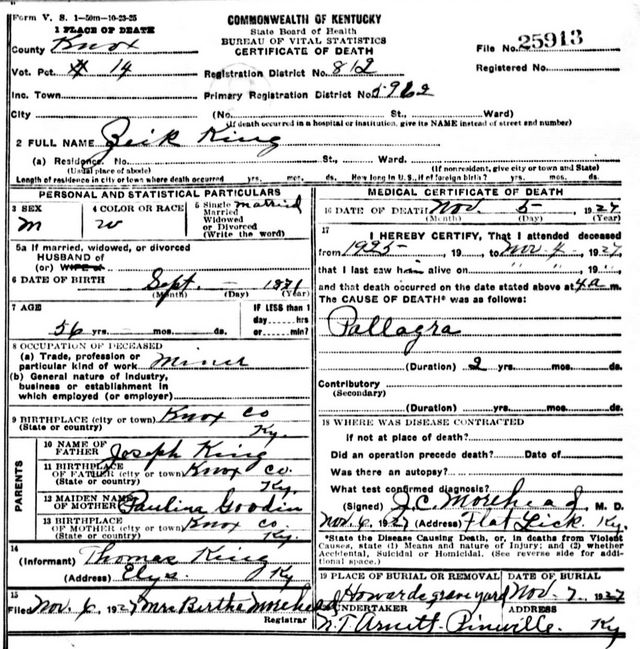 Form V. S. 1—50m—10-23-25
1 PLACE OF DEATH
County Knox
Vot. Pct. 14
Inc. Town
City
COMMONWEALTH OF KENTUCKY
State Board of Health
BUREAU OF VITAL STATISTICS
CERTIFICATE OF DEATH
File No. 25913
Registered No.
Registration District No. 812
Primary Registration District No. 5962
(No. St., Ward)
(If death occurred in a hospital or institution, give its NAME instead of street and number)
2 FULL NAME Zeik King
(a) Residence. No. St., Ward.
(Usual place of abode) (If nonresident, give city or town and State)
Length of residence in city or town where death occurred yrs. mos. ds. How long in U. S., if of foreign birth? yrs. mos. ds.
PERSONAL AND STATISTICAL PARTICULARS
3 SEX
m
4 COLOR OR RACE
w
5 Single married
Married
Widowed
or Divorced
(Write the word)
5a If married, widowed, or divorced
HUSBAND of
(or) WIFE of
6 DATE OF BIRTH Sept. — 1871
(Month) (Day) (Year)
7 AGE
56 yrs. mos. ds.
IF LESS than 1
day hrs
or min?
8 OCCUPATION OF DECEASED
(a) Trade, profession or
particular kind of work Miner
(b) General nature of industry,
business or establishment in
which employed (or employer)
9 BIRTHPLACE (city or town) Knox Co
(State or country) Ky.
PARENTS
10 NAME OF
FATHER Joseph King
11 BIRTHPLACE
OF FATHER (city or town) Knox co.
(State or country) Ky.
12 MAIDEN NAME
OF MOTHER Paulina Goodin
13 BIRTHPLACE
OF MOTHER (city or town) Knox co
(State or country) Ky.
14
(Informant) Thomas King
(Address) Elys. Ky
15
Filed Nov. 6, 1927 Mrs Birthe Morehead
Registrar
MEDICAL CERTIFICATE OF DEATH
16 DATE OF DEATH Nov. 5 1927
(Month) (Day) (Year)
17
I HEREBY CERTIFY, That I attended deceased
from 1925, 19 , to Nov. 4, 1927,
that I last saw him alive on " " " , 19"
and that death occurred on the date stated above at 4a m.
The CAUSE OF DEATH* was as follows:
Pallagra
(Duration) 2 yrs. mos. ds.
Contributory
(Secondary)
(Duration) yrs. mos. ds.
18 WHERE WAS DISEASE CONTRACTED
If not at place of death?
Did an operation precede death? Date of.
Was there an autopsy?
What test confirmed diagnosis?
(Signed) J.C. Morehead, M. D.
Nov. 6, 1927 (Address) Flat Lick Ky.
*State the Disease Causing Death, or, in deaths from Violent
Causes, state (1) Means and nature of Injury; and (2) whether
Accidental, Suicidal or Homicidal. (See reverse side for addi-
tional space.)
19 PLACE OF BURIAL OR REMOVAL
Howards graveyard
DATE OF BURIAL
Nov. 7, 1927
20 UNDERTAKER
N.T Arnett
ADDRESS
Pineville. Ky